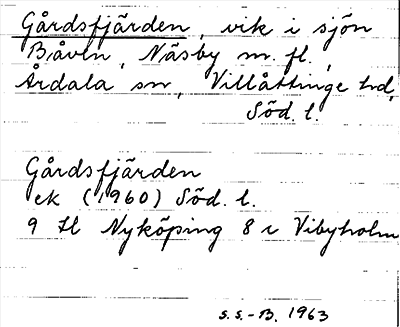 Gårdsfjärden, vik i sjön
Båven, Näsby m. fl.,
Årdala sn, Villåttinge hd,
Söd. l.
Gårdsfjärden
ek (1960) Söd. l.
9 H Nyköping 8 c Vibyholm
S.S.-B. 1963